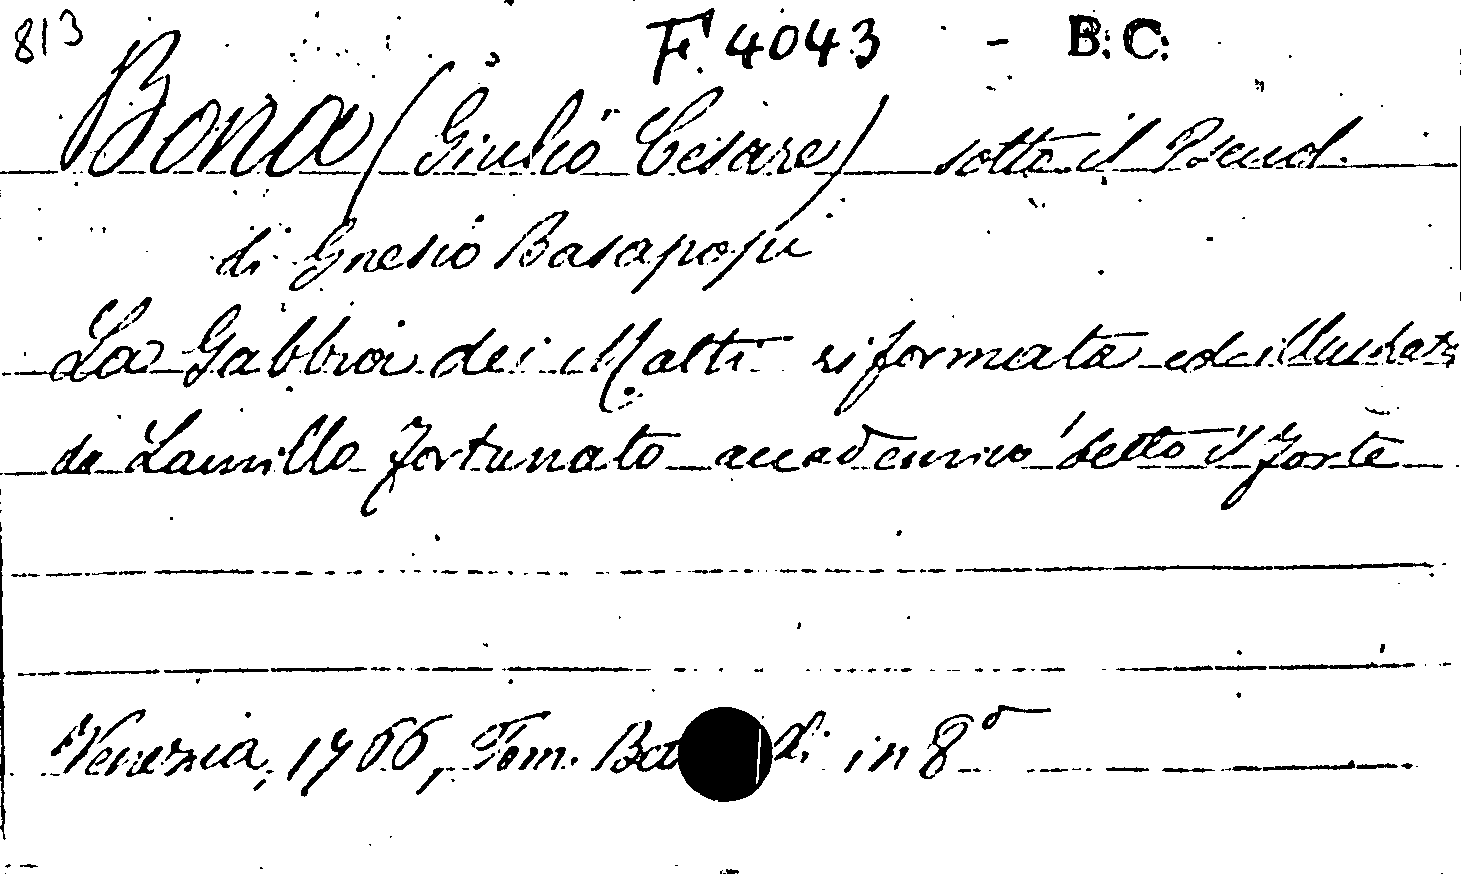 813 F. 4043 - B. C.
Bona (Giulio Cesare) sotto il Pseud.
di Gnesio Basapopi
La Gabbia dei Matti riformata ed illustrata
da Lamillo Fortunato accademico detto il Forte
Venezia, 1766, Tom. di in 8º